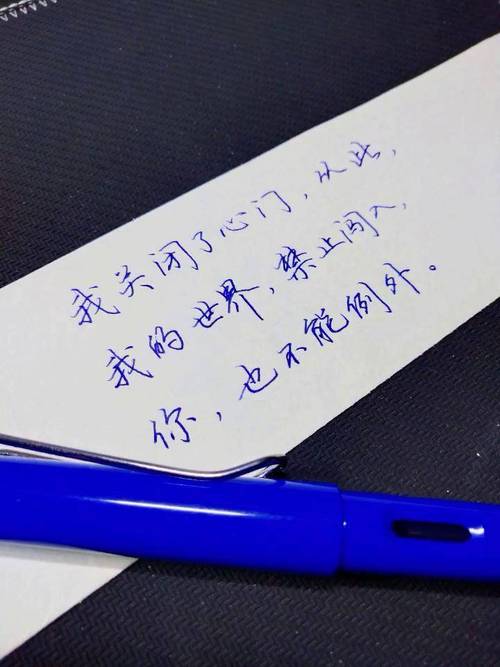 我关闭了心门，从此，
我的世界，禁止闯入，
你，也不能例外。